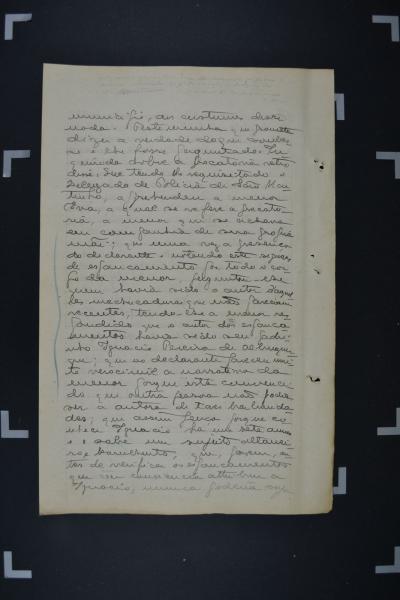 município, aos costumes disse
nada. Testemunha que prometteu
dizer a verdade do que soubes-
se e lhe fosse perguntado. In-
quirido sobre a precatoria retro
disse: Que tendo lhe requisitado o
Delegado de Policia de São Ma-
theus, apprehendeu a menor
Eva, a qual se refere a precato-
ria, a menor que se achava
em companhia de sua propria
mãe; que uma vez a presença
do declarante e notando este signaes
de espancamento por todo o cor-
po da menor, perguntou-lhe
quem havia sido o autor daquel-
las machucaduras que não pareciam
recentes, tendo-lhe a menor res-
pondido que o autor dos espanca-
mentos havia sido seu padri-
nho Ignacio Pereira de Albuquer-
que; que ao declarante pareceu mui-
to verosimil a narrativa da
menor porque está convenci-
do, que outra pessoa não podia
ser a autora de taes barbarida-
des; que assim pensa porque co-
nhece Ignacio ha uns sete annos
e o sabe um sujeito
e barulhento, que, porem, an-
tes de verificar os espancamentos
que em consciencia attribue a
Ignacio, nunca poderia sup-